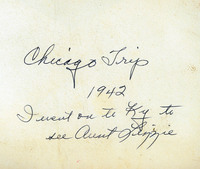 Chicago Trip
1942
I went on to Ky to
see Aunt Lizzie